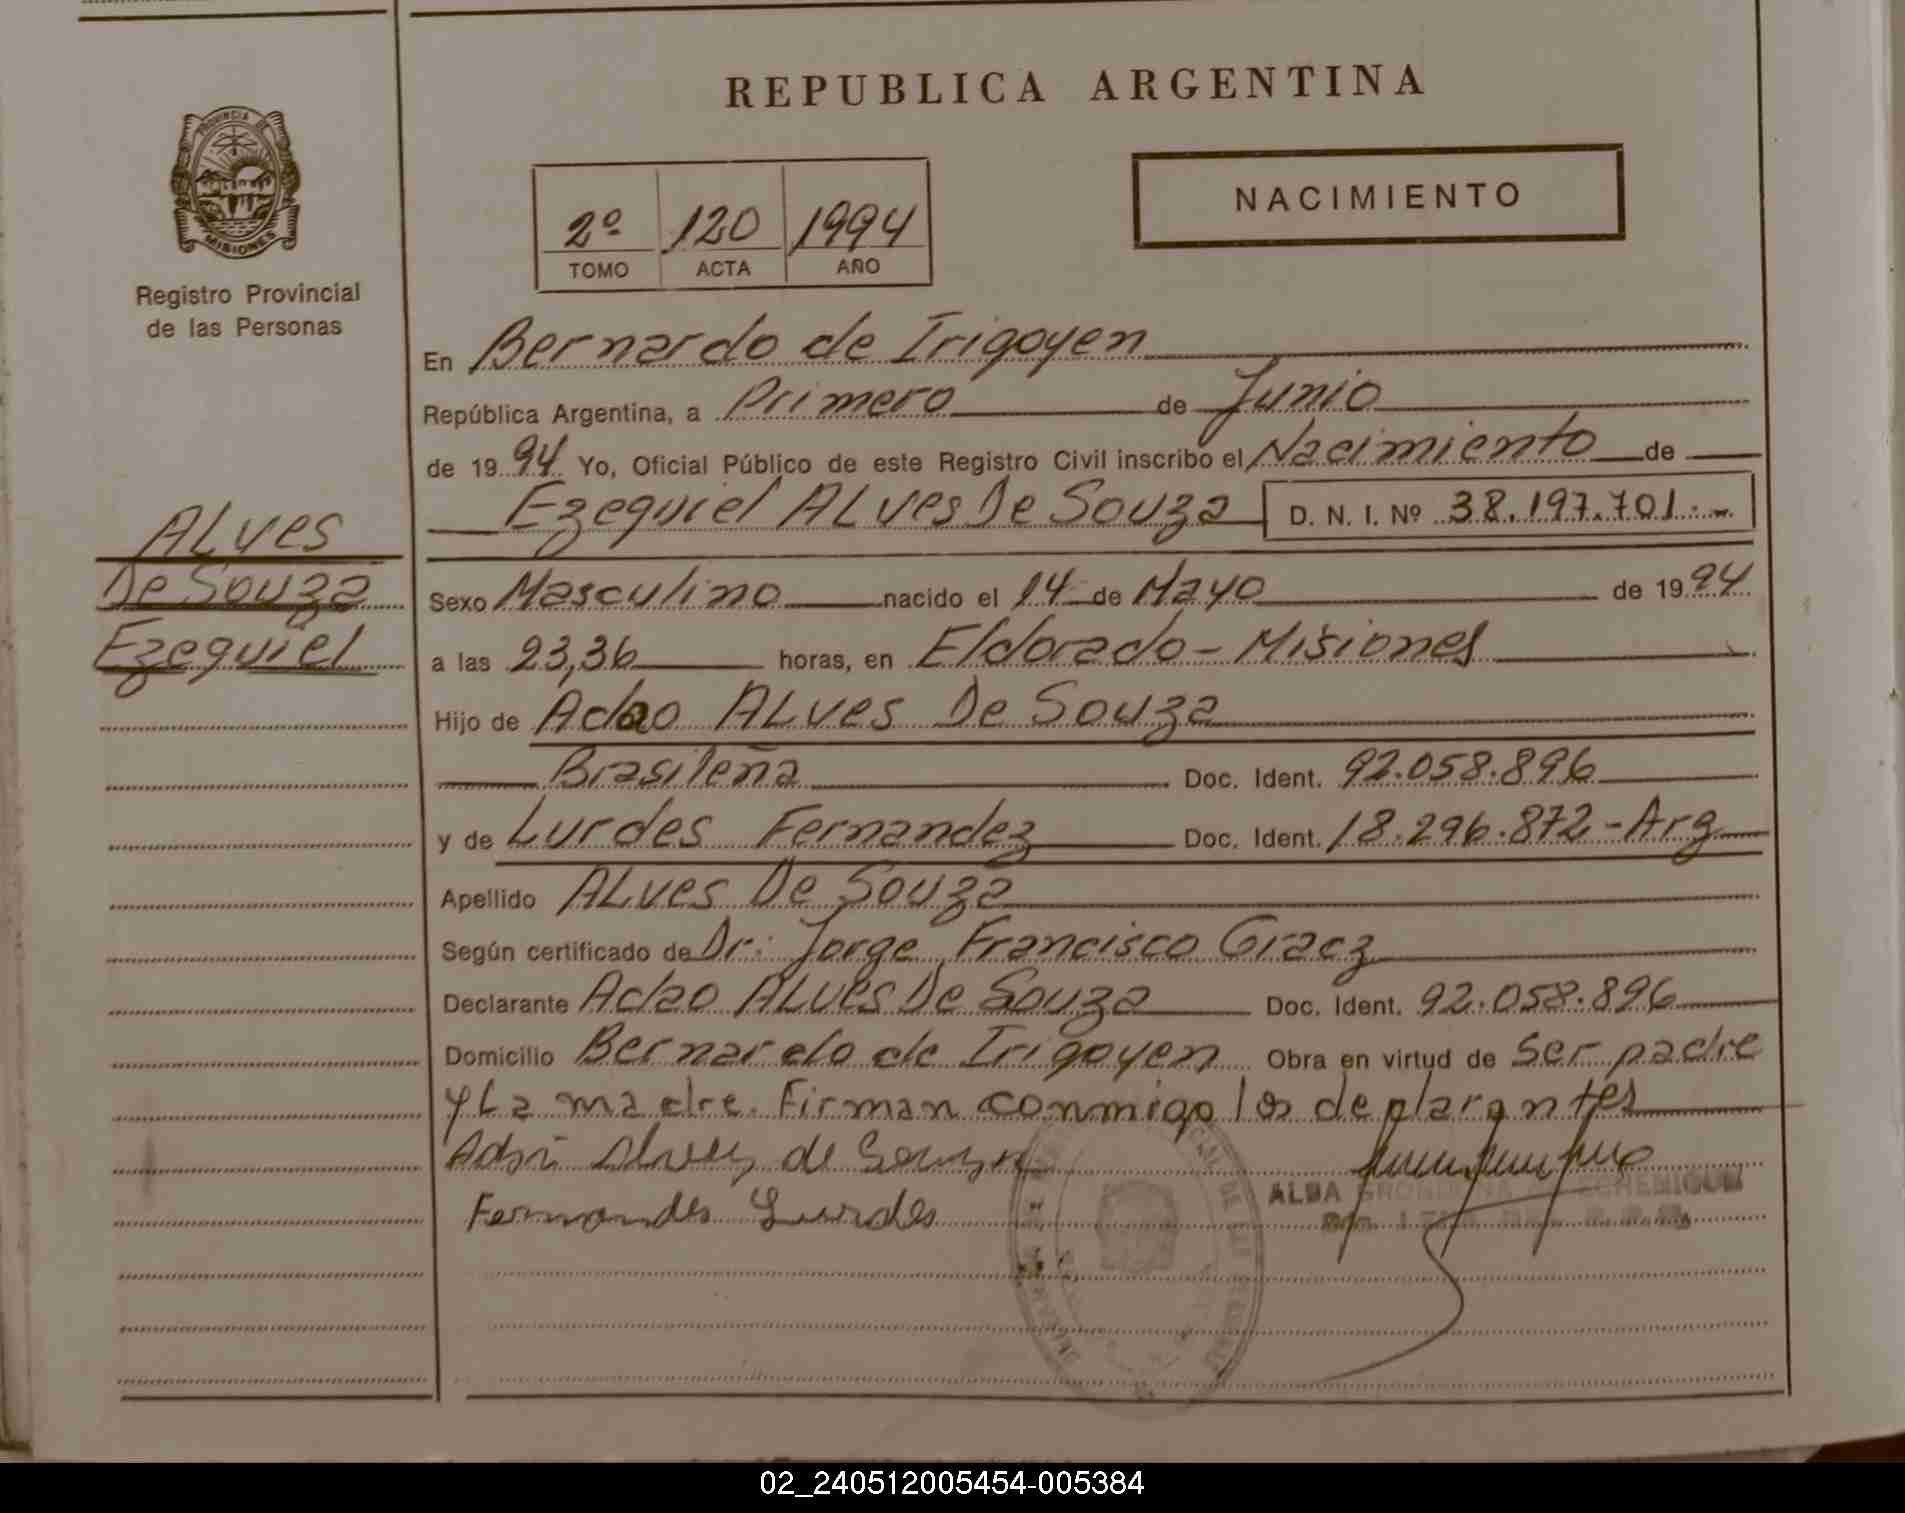 REPUBLICA ARGENTINA
PROVINCIA DE
MISIONES
Registro Provincial
de las Personas
NACIMIENTO
2º 120 1994
TOMO ACTA AÑO
En Bernardo de Irigoyen
República Argentina, a Primero de Junio
de 1994 Yo, Oficial Público de este Registro Civil inscribo el Nacimiento de
Ezequiel ALves De Souza D. N. I. Nº 38.197.701.-
ALves
De Souza
Ezequiel
Sexo Masculino nacido el 14 de Mayo de 1994
a las 23,36 horas, en Eldorado - Misiones
Hijo de Adao ALves De Souza
Brasileña Doc. Ident. 92.058.896
y de Lurdes Fernandez Doc. Ident. 18.296.872-Arg
Apellido ALves De Souza
Según certificado de Dr: Jorge Francisco Gracz
Declarante Adao ALves De Souza Doc. Ident. 92.058.896
Domicilio Bernardo de Irigoyen Obra en virtud de Ser padre
y La madre. Firman conmigo los deplarantes
Alves de Souza
Fernandes Lurdes
ALBA
02_240512005454-005384